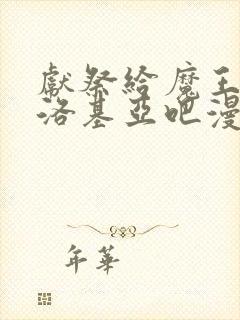 獻祭給魔王
洛基亞吧漫
年華